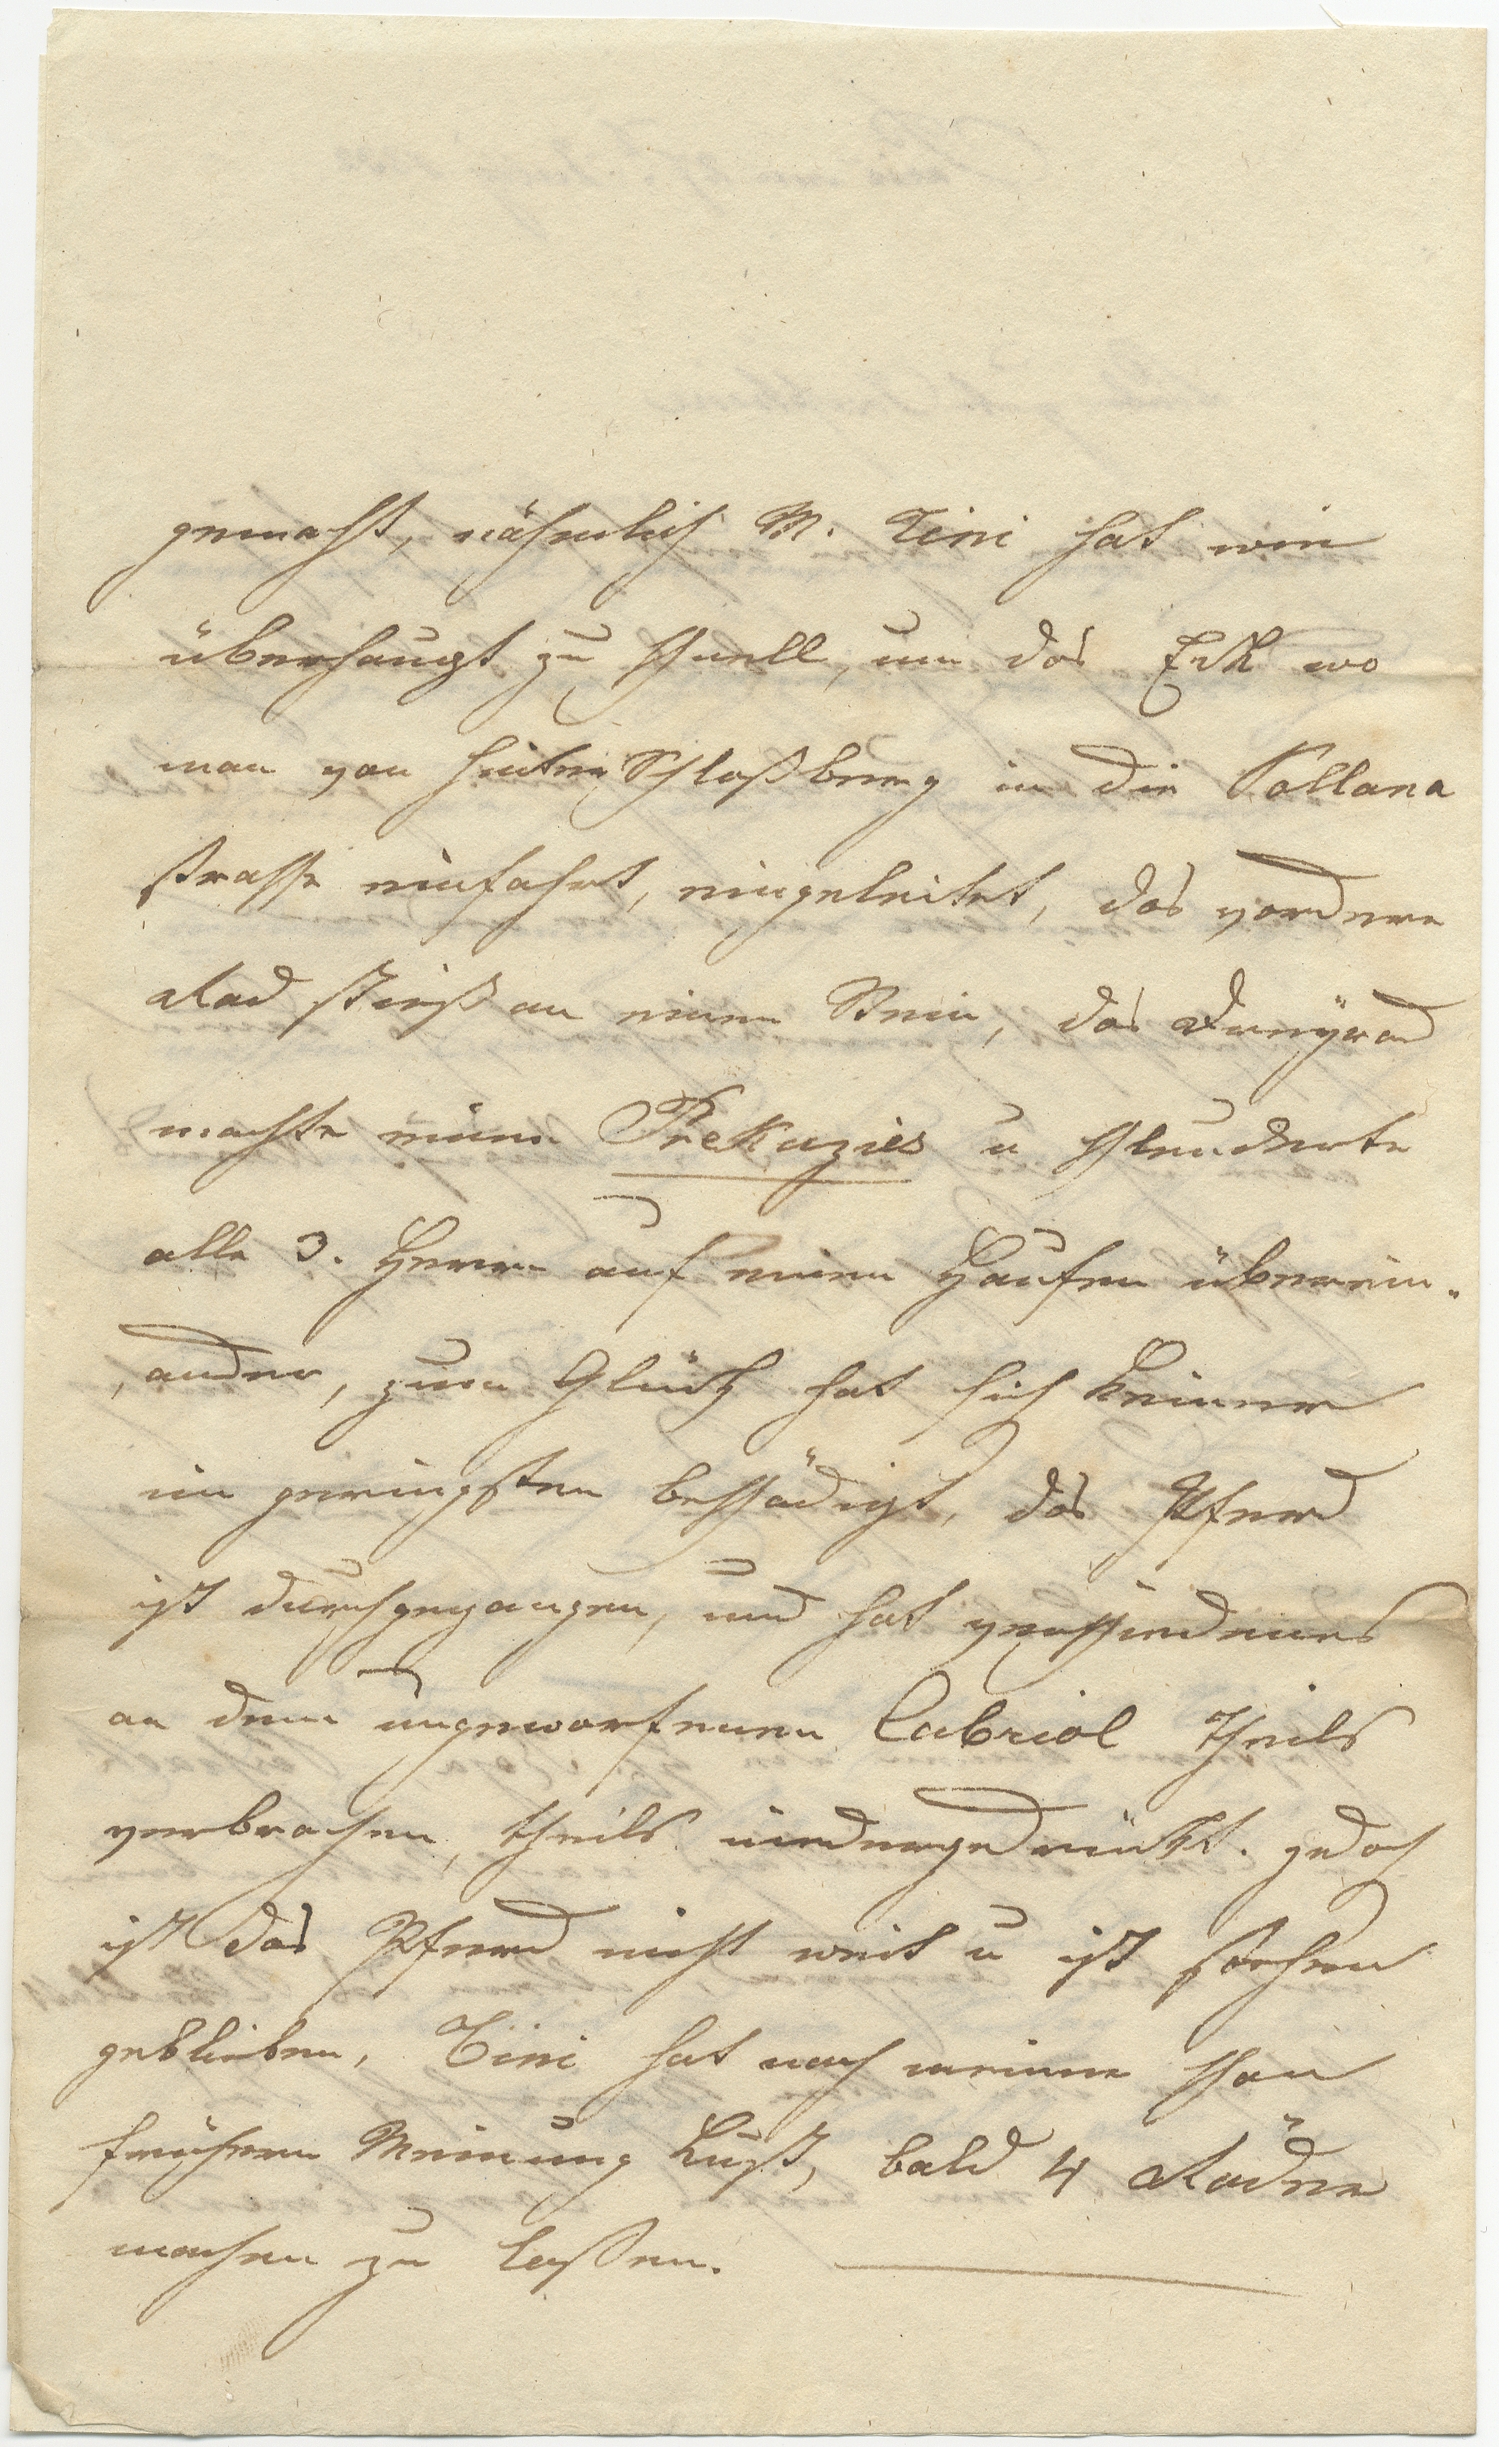 gemacht, nähmlich M. Tini hat wie
überhaupt zu schnell, um das Eck wo
man von hintern Schloßberg in die Pollana
strasse einfahrt, eingeleitet, das vordere
Rad stieß an einen Stein, das Dreÿrad
machte einen Prekuzies u schleuderte
alle 3. Herrn auf einen Haufen überein„
„ander, zum Glück hat sich keiner
im geringsten beschädigt, das Pferd
ist durchgegangen, und hat verschiedenes
an dem umgeworfenen Cabriol theils
verbrochen, theils niedergedrückt. jedoch
ist das Pferd nicht weit u ist stehen
geblieben, Tini hat nach meiner schon
frühern Meinung Lust, bald 4 Räder
machen zu laßen.